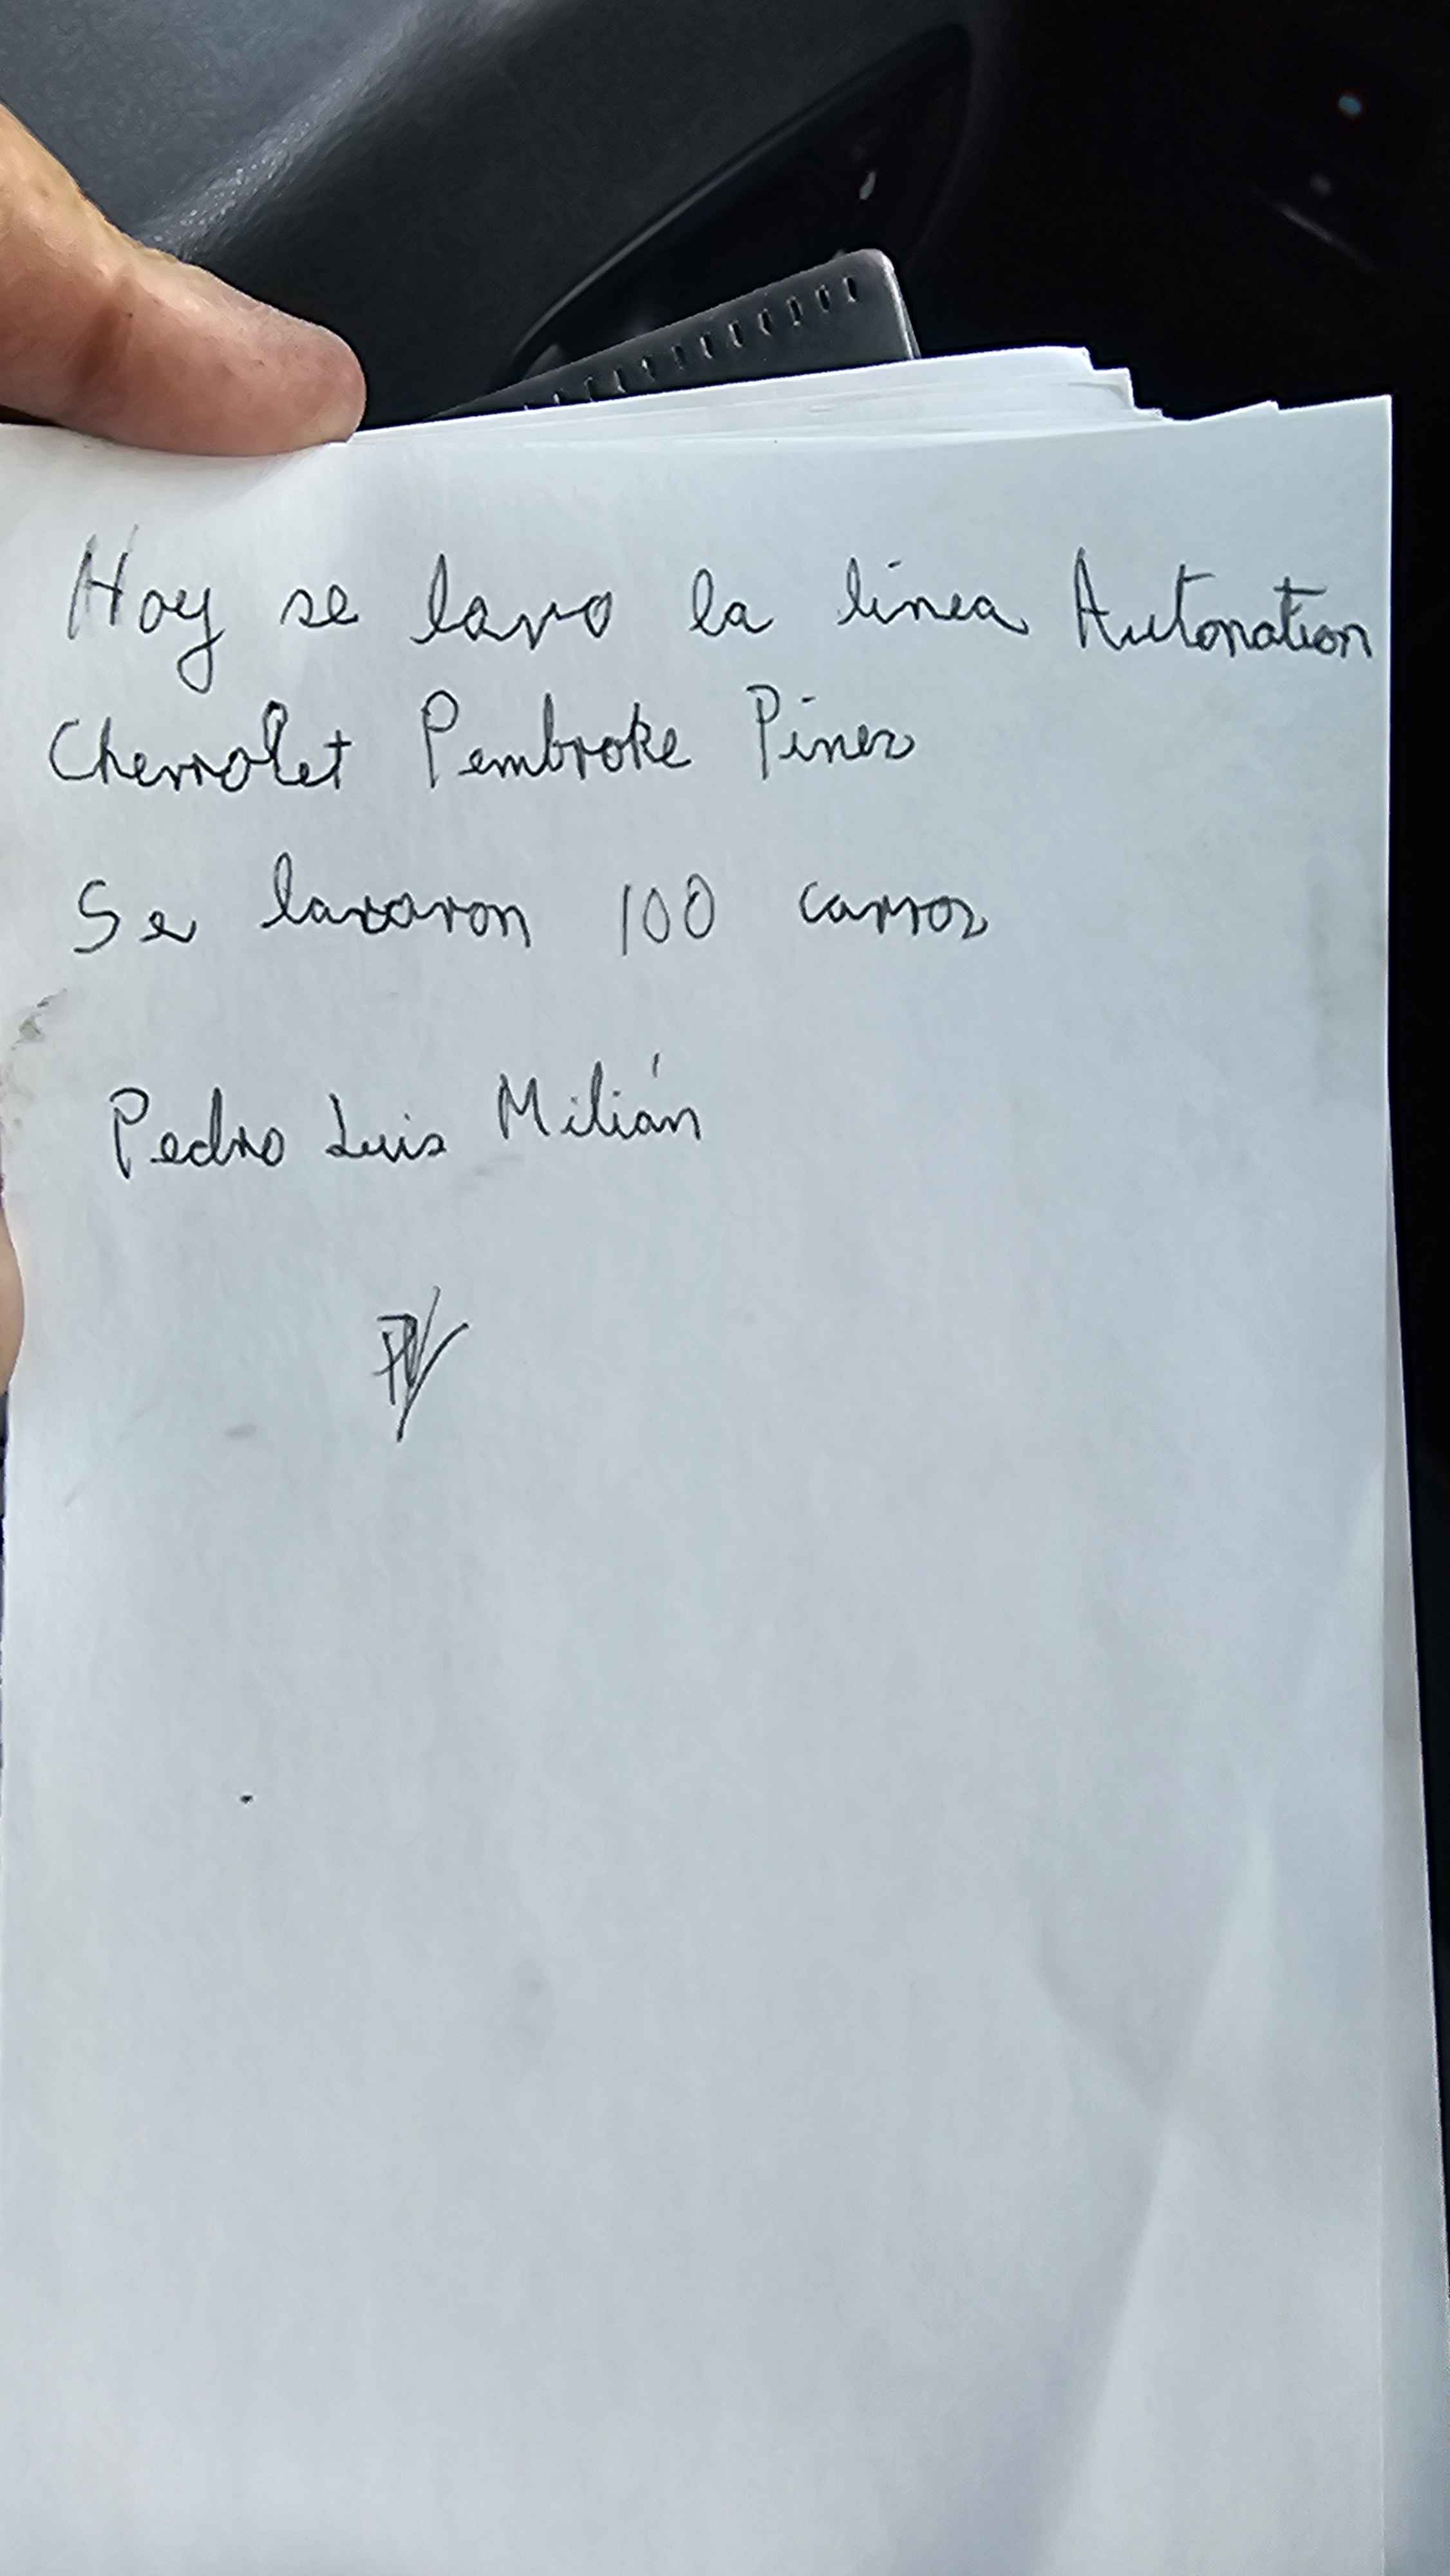 Hoy se lavo la linea Autonation
Chevrolet Pembroke Pines
Se lavaron 100 carros
Pedro Luis Milián